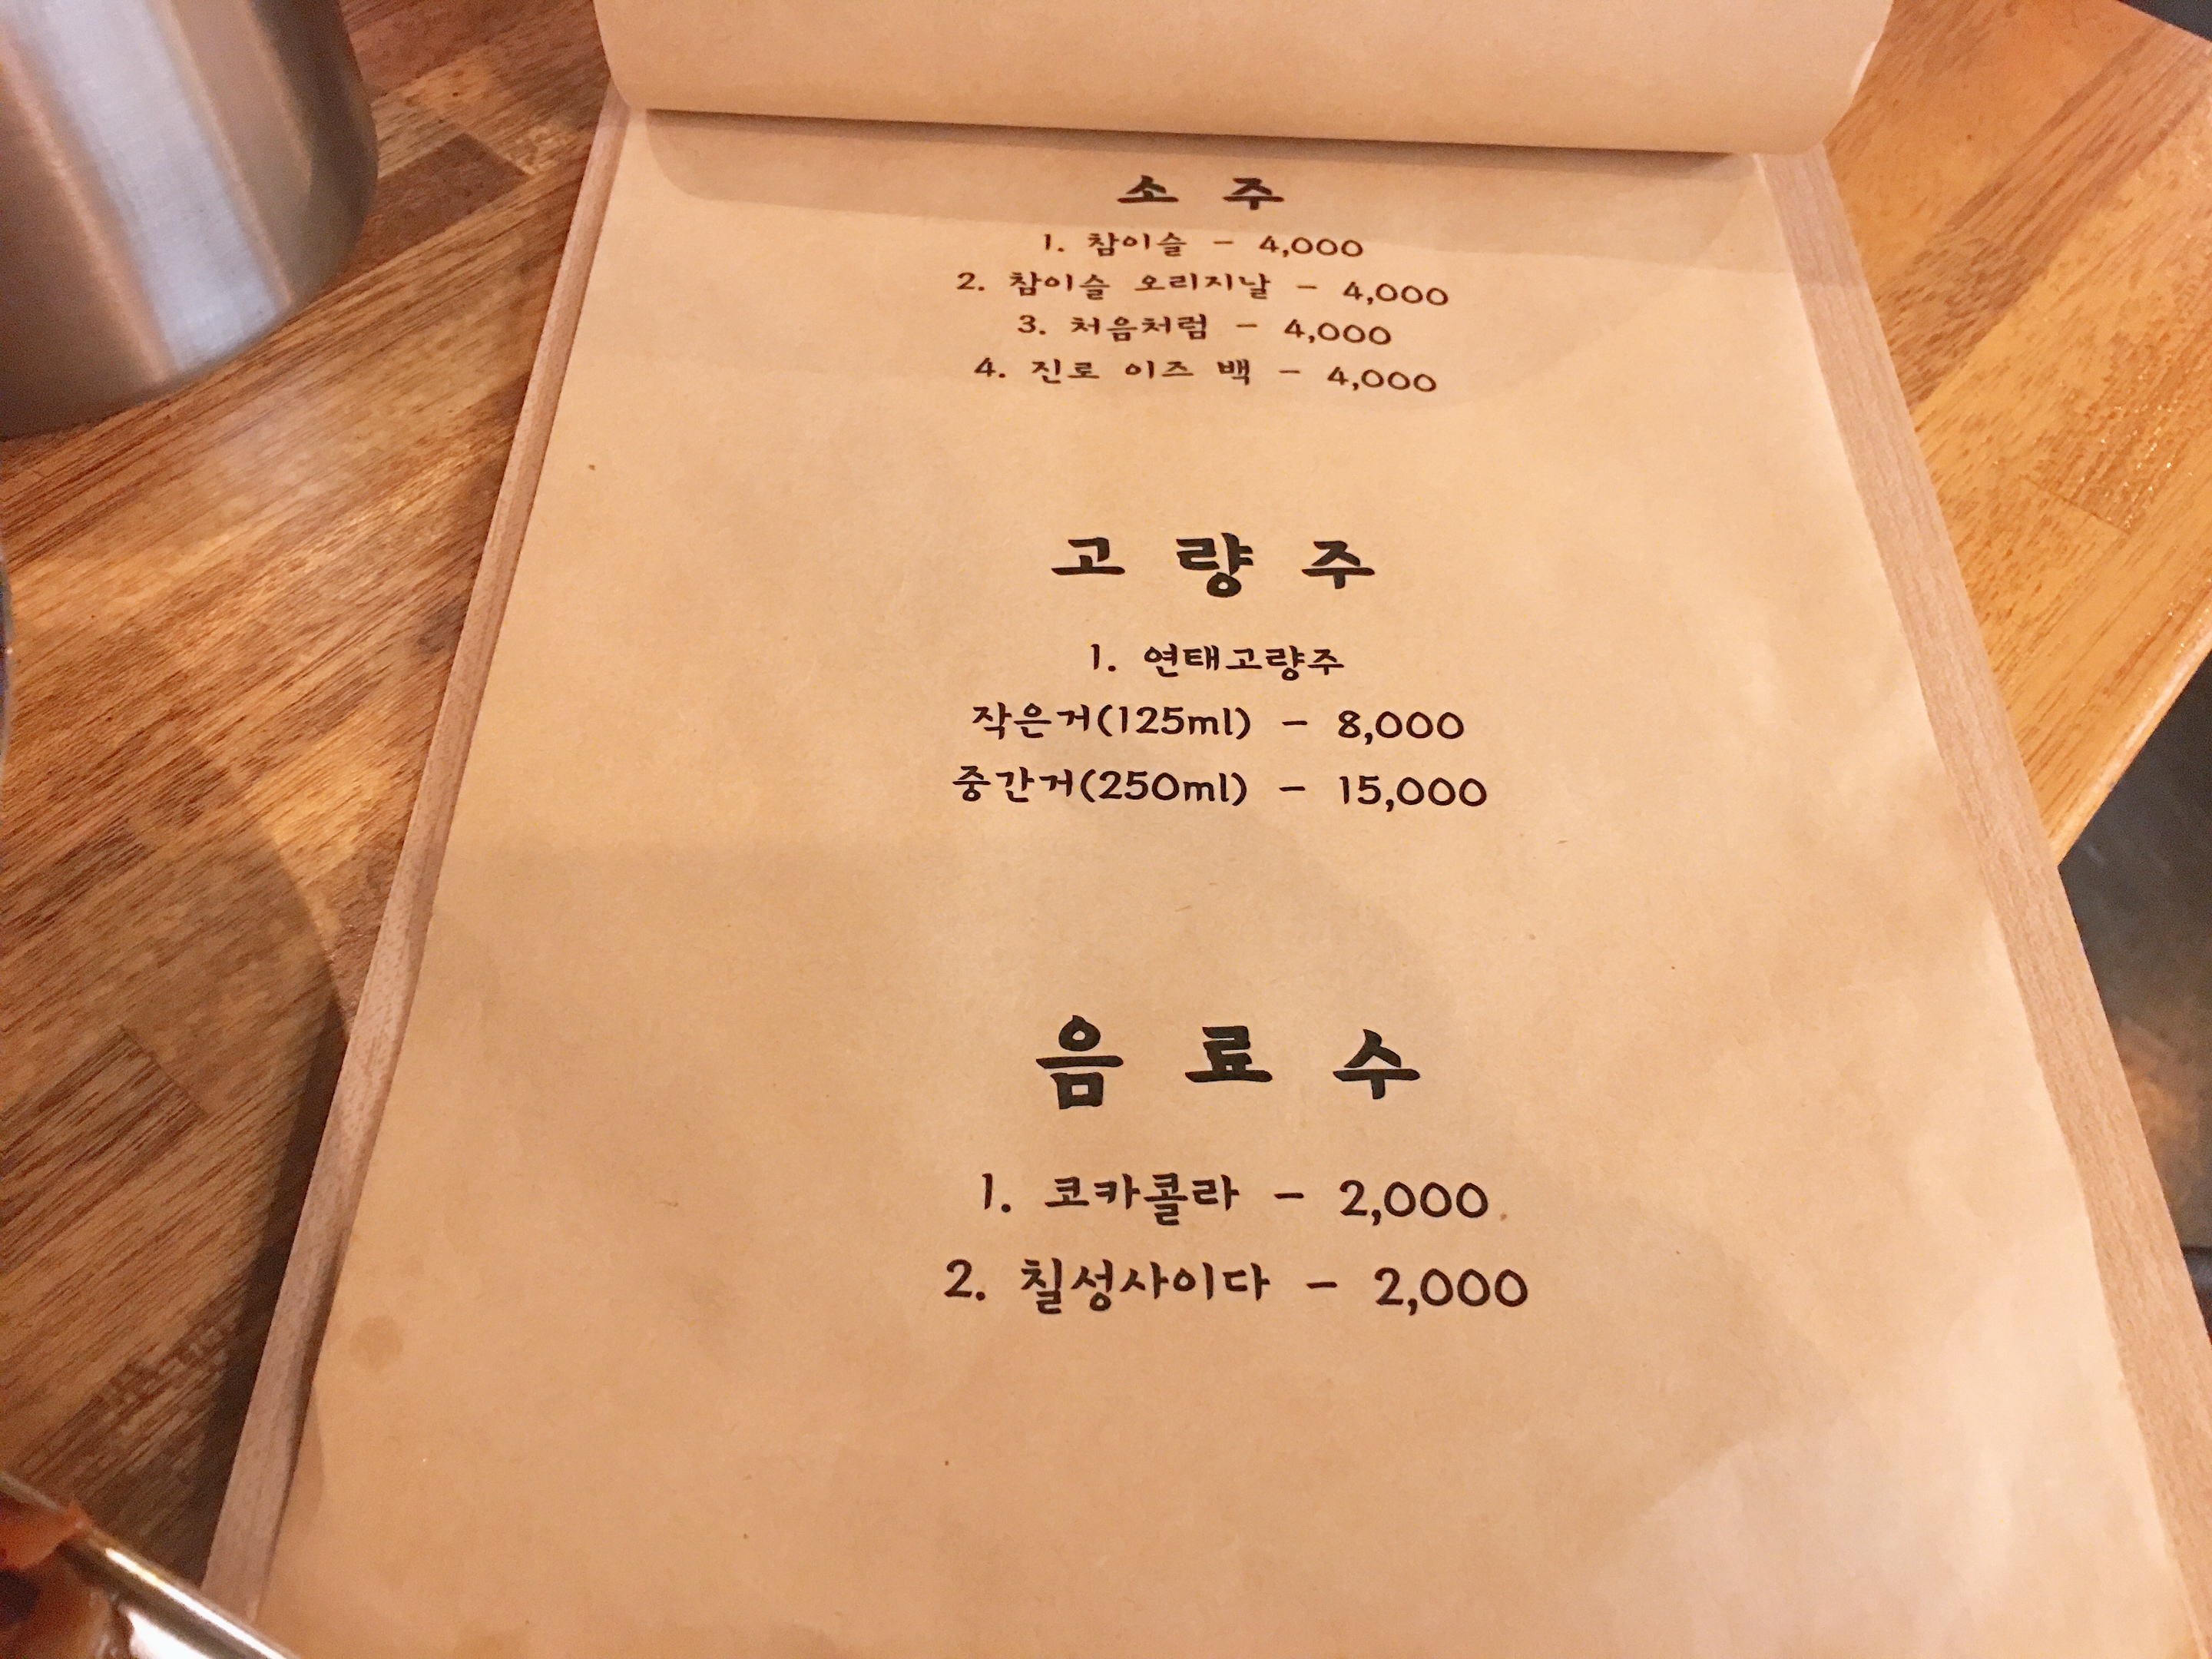 소 주
1. 참이슬 - 4,000
2. 참이슬 오리지날 - 4,000
3. 처음처럼 - 4,000
4. 진로 이즈 백 - 4,000
고 량 주
1. 연태고량주
작은거(125ml) - 8,000
중간거(250ml) - 15,000
음 료 수
1. 코카콜라 - 2,000
2. 칠성사이다 - 2,000